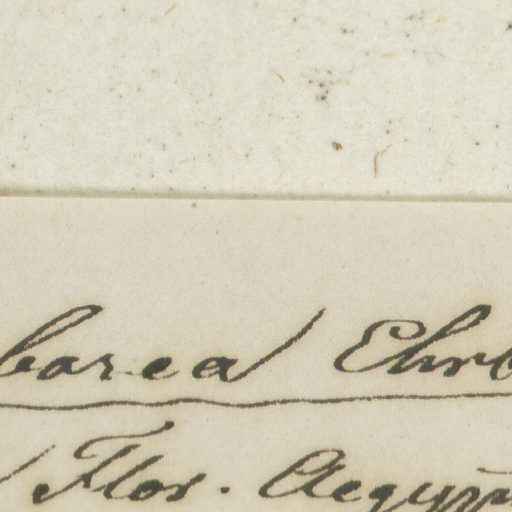 borea Ehrb
Flor. Aegyp